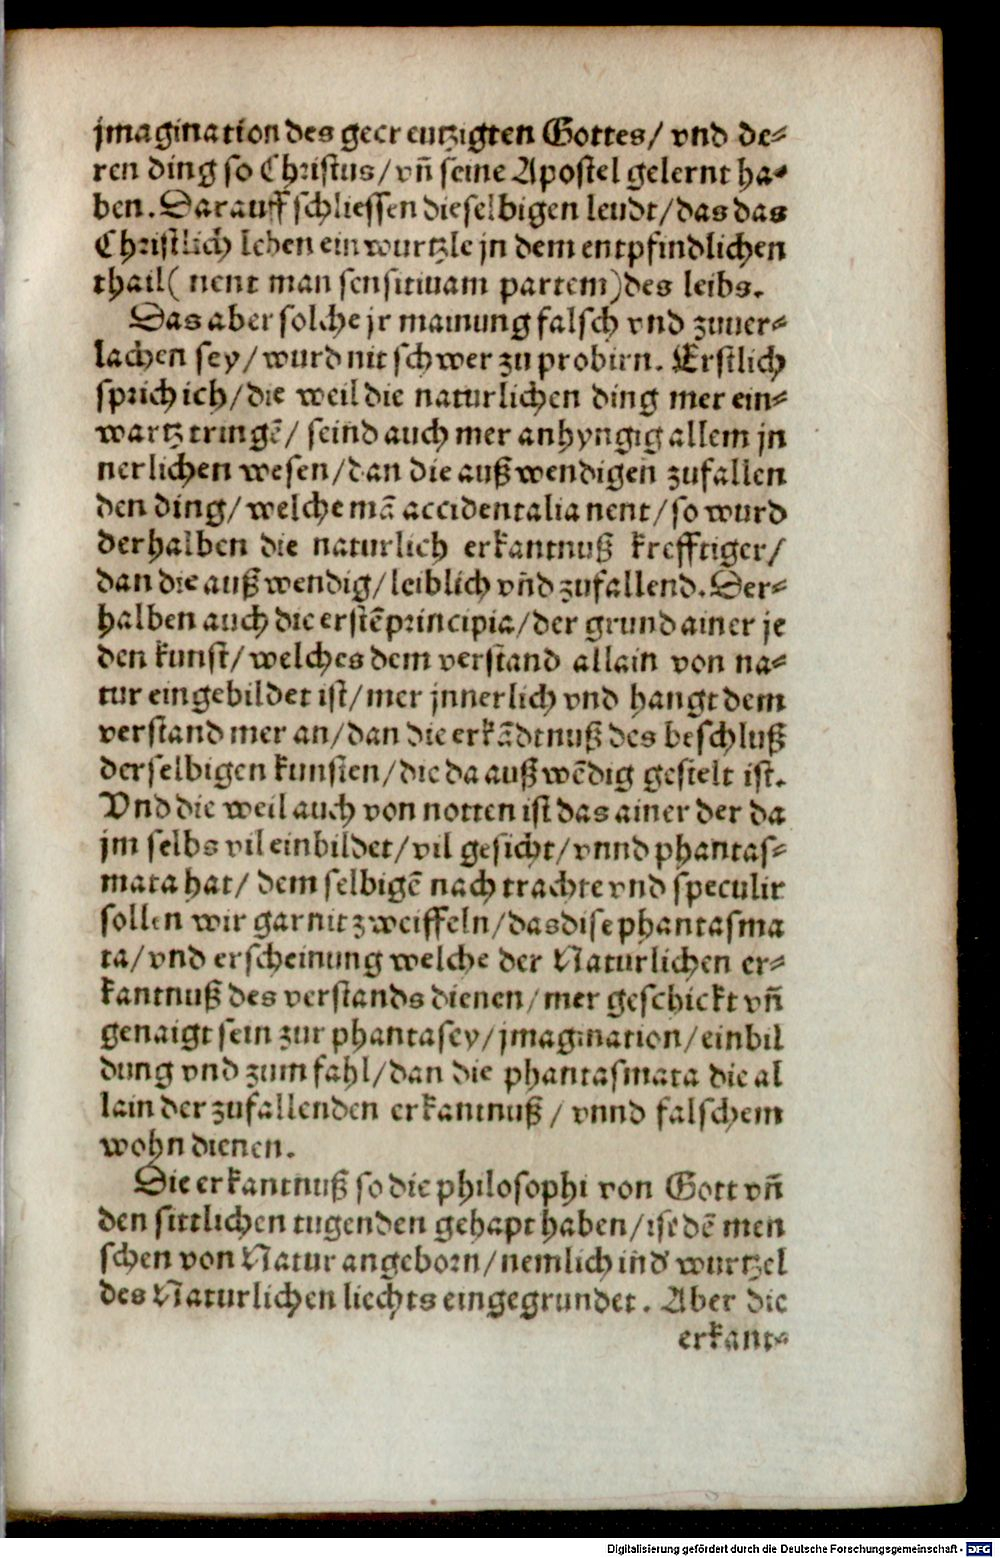 jmagination des gecreutzigten Gottes/ vnd de⸗
ren ding so Christus/ vñ seine Apostel gelernt ha⸗
ben. Darauff schliessen dieselbigen leudt/ das das
Christlich leben ein wurtzle jn dem entpfindlichen
thail ( nent man sensitiuam partem) des leibs.
Das aber solche jr mainung falsch vnd zuuer⸗
lachen sey/ wurd nit schwer zu probirn. Erstlich
sprich ich/ die weil die naturlichen ding mer ein⸗
wartz tringē/ seind auch mer anhyngig allem jn
nerlichen wesen/ dan die außwendigen zufallen
den ding/ welche mā accidentalia nent/ so wurd
derhalben die naturlich erkantnuß krefftiger/
dan die außwendig/ leiblich vñd zufallend. Der⸗
halben auch die erstē principia/ der grund ainer je
den kunst/ welches dem verstand allain von na⸗
tur eingebildet ist/ mer jnnerlich vnd hangt dem
verstand mer an/ dan die erkādtnuß des beschluß
derselbigen kunsten/ die da außwēdig gestelt ist.
Vnd die weil auch von notten ist das ainer der da
jm selbs vil einbildet/ vil gesicht/ vnnd phantas⸗
mata hat/ dem selbigē nach trachte vnd speculir
sollen wir gar nit zweiffeln/ das dise phantasma
ta/ vnd erscheinung welche der Naturlichen er⸗
kantnuß des verstands dienen/ mer geschickt vñ
genaigt sein zur phantasey/ jmagination/ einbil
dung vnd zum fahl/ dan die phantasmata die al
lain der zufallenden erkantnuß / vnnd falschem
wohn dienen.
Die erkantnuß so die philosophi von Gott vñ
den sittlichen tugenden gehapt haben/ ist dē men
schen von Natur angeborn/ nemlich in d' wurtzel
des Naturlichen liechts eingegrundet. Aber die
erkant⸗
Digitalisierung gefördert durch die Deutsche Forschungsgemeinschaft - DFG